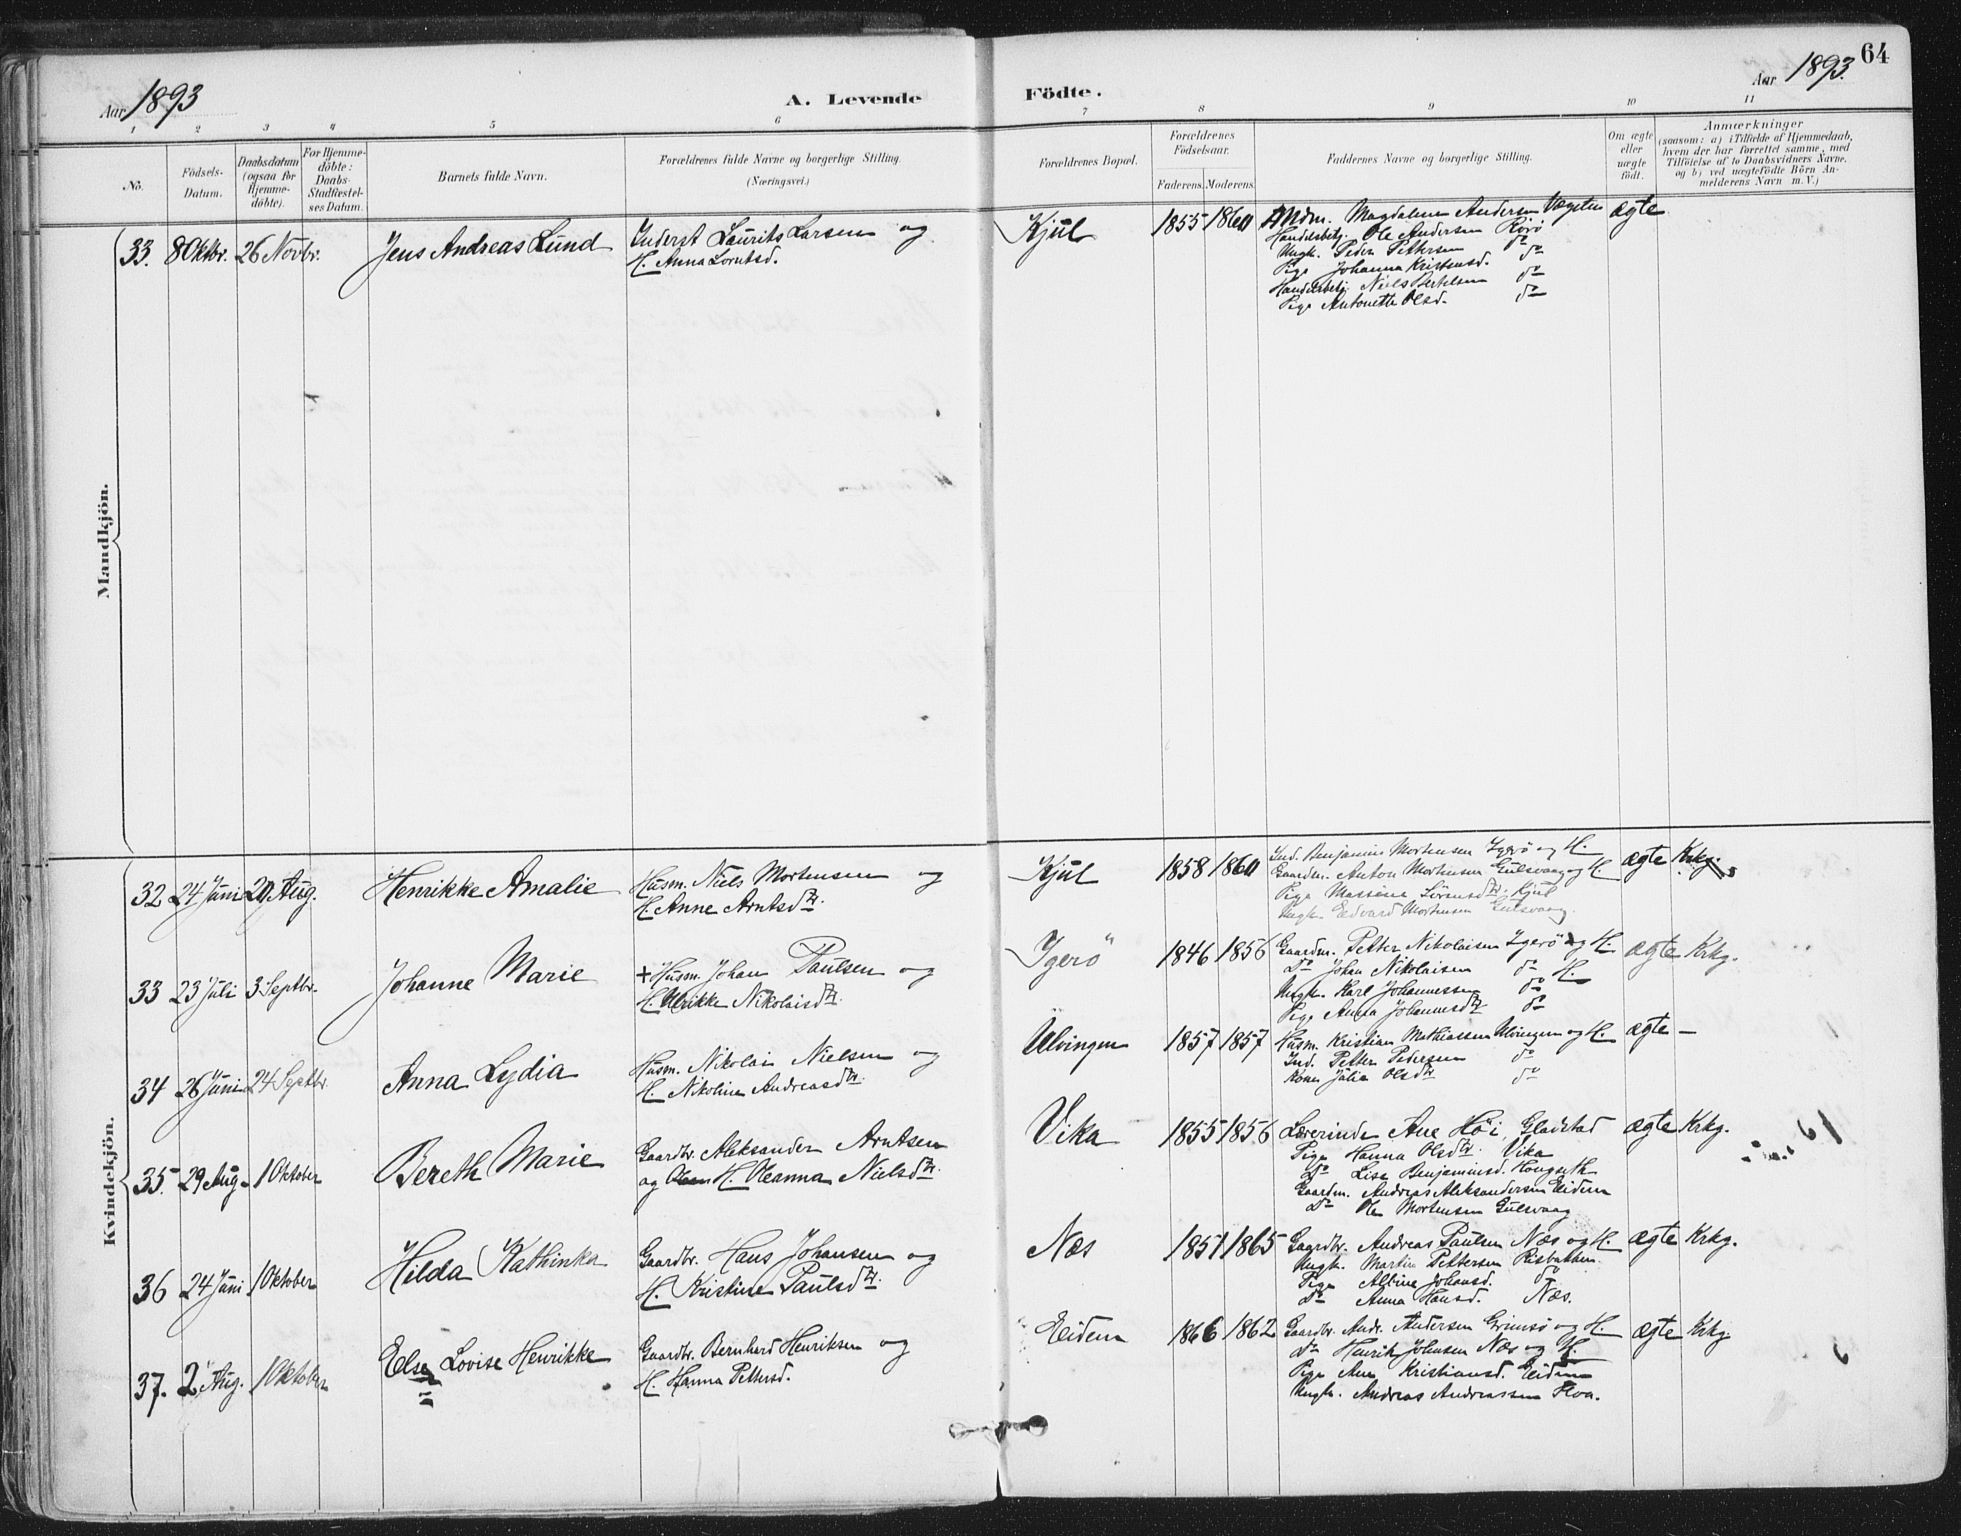 64
Aar 1893
A. Levende
Födte.
Aar 1893.
1 2 3 4 5 6 7 8 9 10 11
No.
Födsels-
Datum.
Daabsdatum
(ogsaa for
Hjemme-
döbte).
For Hjemme-
döbte:
Daabs-
Stadfæstel-
ses Datum.
Barnets fulde Navn.
Forældrenes fulde Navne og borgerlige Stilling.
(Næringsvei.)
Forældrenes Bopæl.
Forældrenes
Födselsaar.
Faderens. Moderens.
Faddernes Navne og borgerlige Stilling.
Om ægte
eller
uægte
födt.
Anmærkninger
(saasom: a) i Tilfælde af Hjemmedaab,
hvem der har forrettet samme, med
Tilföielse af to Daabsvidners Navne,
og b) ved uægtefödte Börn An-
melderens Navn m. V.)
Mandkjön.
33. 8 Oktbr. 26 Novbr. Jens Andreas Lund
Inderst Laurits Larsen og
H. Anna Lorntsd.
Kjül 1855 1860
Mdm. Magdalene Andersen Vægsten
Handelsbetj. Ole Andersen Rörö
Ungk. Peder Pettersen do
Pige Johanna Kristensd. do
Handelsbetj. Niels Bertelsen do
Pige Antonette Olsd. do
ægte
Kvindekjön.
32 24 Juni 20 Aug. Henrikke Amalie
Husm. Niels Mortensen og
H. Anne Arntsdtr.
Kjül 1858 1860
Ind. Benjamin Mortensen Igerö og H.
Gaardm. Anton Mortensen Gulsvaag og H.
Pige Massena Sörensdtr. Kjül
Ungk. Edvard Mortensen Gulsvaag.
ægte Krkg.
33 23 Juli 3 Septbr. Johanne Marie
+ Husm. Johan Paulsen og
H. Ulrikke Nikolaisdtr.
Igerö 1846 1856
Gaardm. Petter Nikolaisen Igerö og H.
Do Johan Nikolaisen do H.
Ungk. Karl Johannessen do
Pige Anna Johannesdtr. do
ægte Krkg.
34 26 Juni 24 Septbr. Anna Lydia
Husm. Nikolai Nielsen og
H. Nikoline Andreasdtr.
Ulvingen 1857 1857
Husm. Kristian Mathiassen Ulvingen og H.
Ind. Petter Pedersen do
Kone Julia Olsdtr. do
ægte –
35. 29 Aug. 1 Oktober Bereth Marie
Gaardbr. Aleksander Arntsen
og H. Oleanna Nielsdtr.
Vika 1855 1856
Lærerinde Ane Höi, Gladstad
Pige Hanna Olsdtr. Vika
Do Lise Benjaminsd. Hongseth
Gaardm. Andreas Aleksandersen Eidem
Do Ole Mortensen Gulsvaag
ægte Krkg.
36 24 Juni 1 Oktober Hilda Kathinka
Gaardbr. Hans Johansen og
H. Kristine Paulsdtr.
Næs 1857 1865
Gaardbr. Andreas Paulsen Næs og H.
Ungk. Martin Pettersen Risbakken
Pige Albine Johansd. do
Do Anna Hansd. Næs.
ægte Krkg.
37. 2 Aug. 1 Oktober Else Lovise Henrikke
Gaardbr. Bernhard Henriksen og
H. Hanna Pettersd.
Eidem 1866 1862
Gaardbr. Andr. Andersen Grimsö og H.
Do Henrik Johnsen Næs og H.
Pige Ane Kristiansd. Eidem
Ungk. Andreas Andreassen Floa.
ægte Krkg.